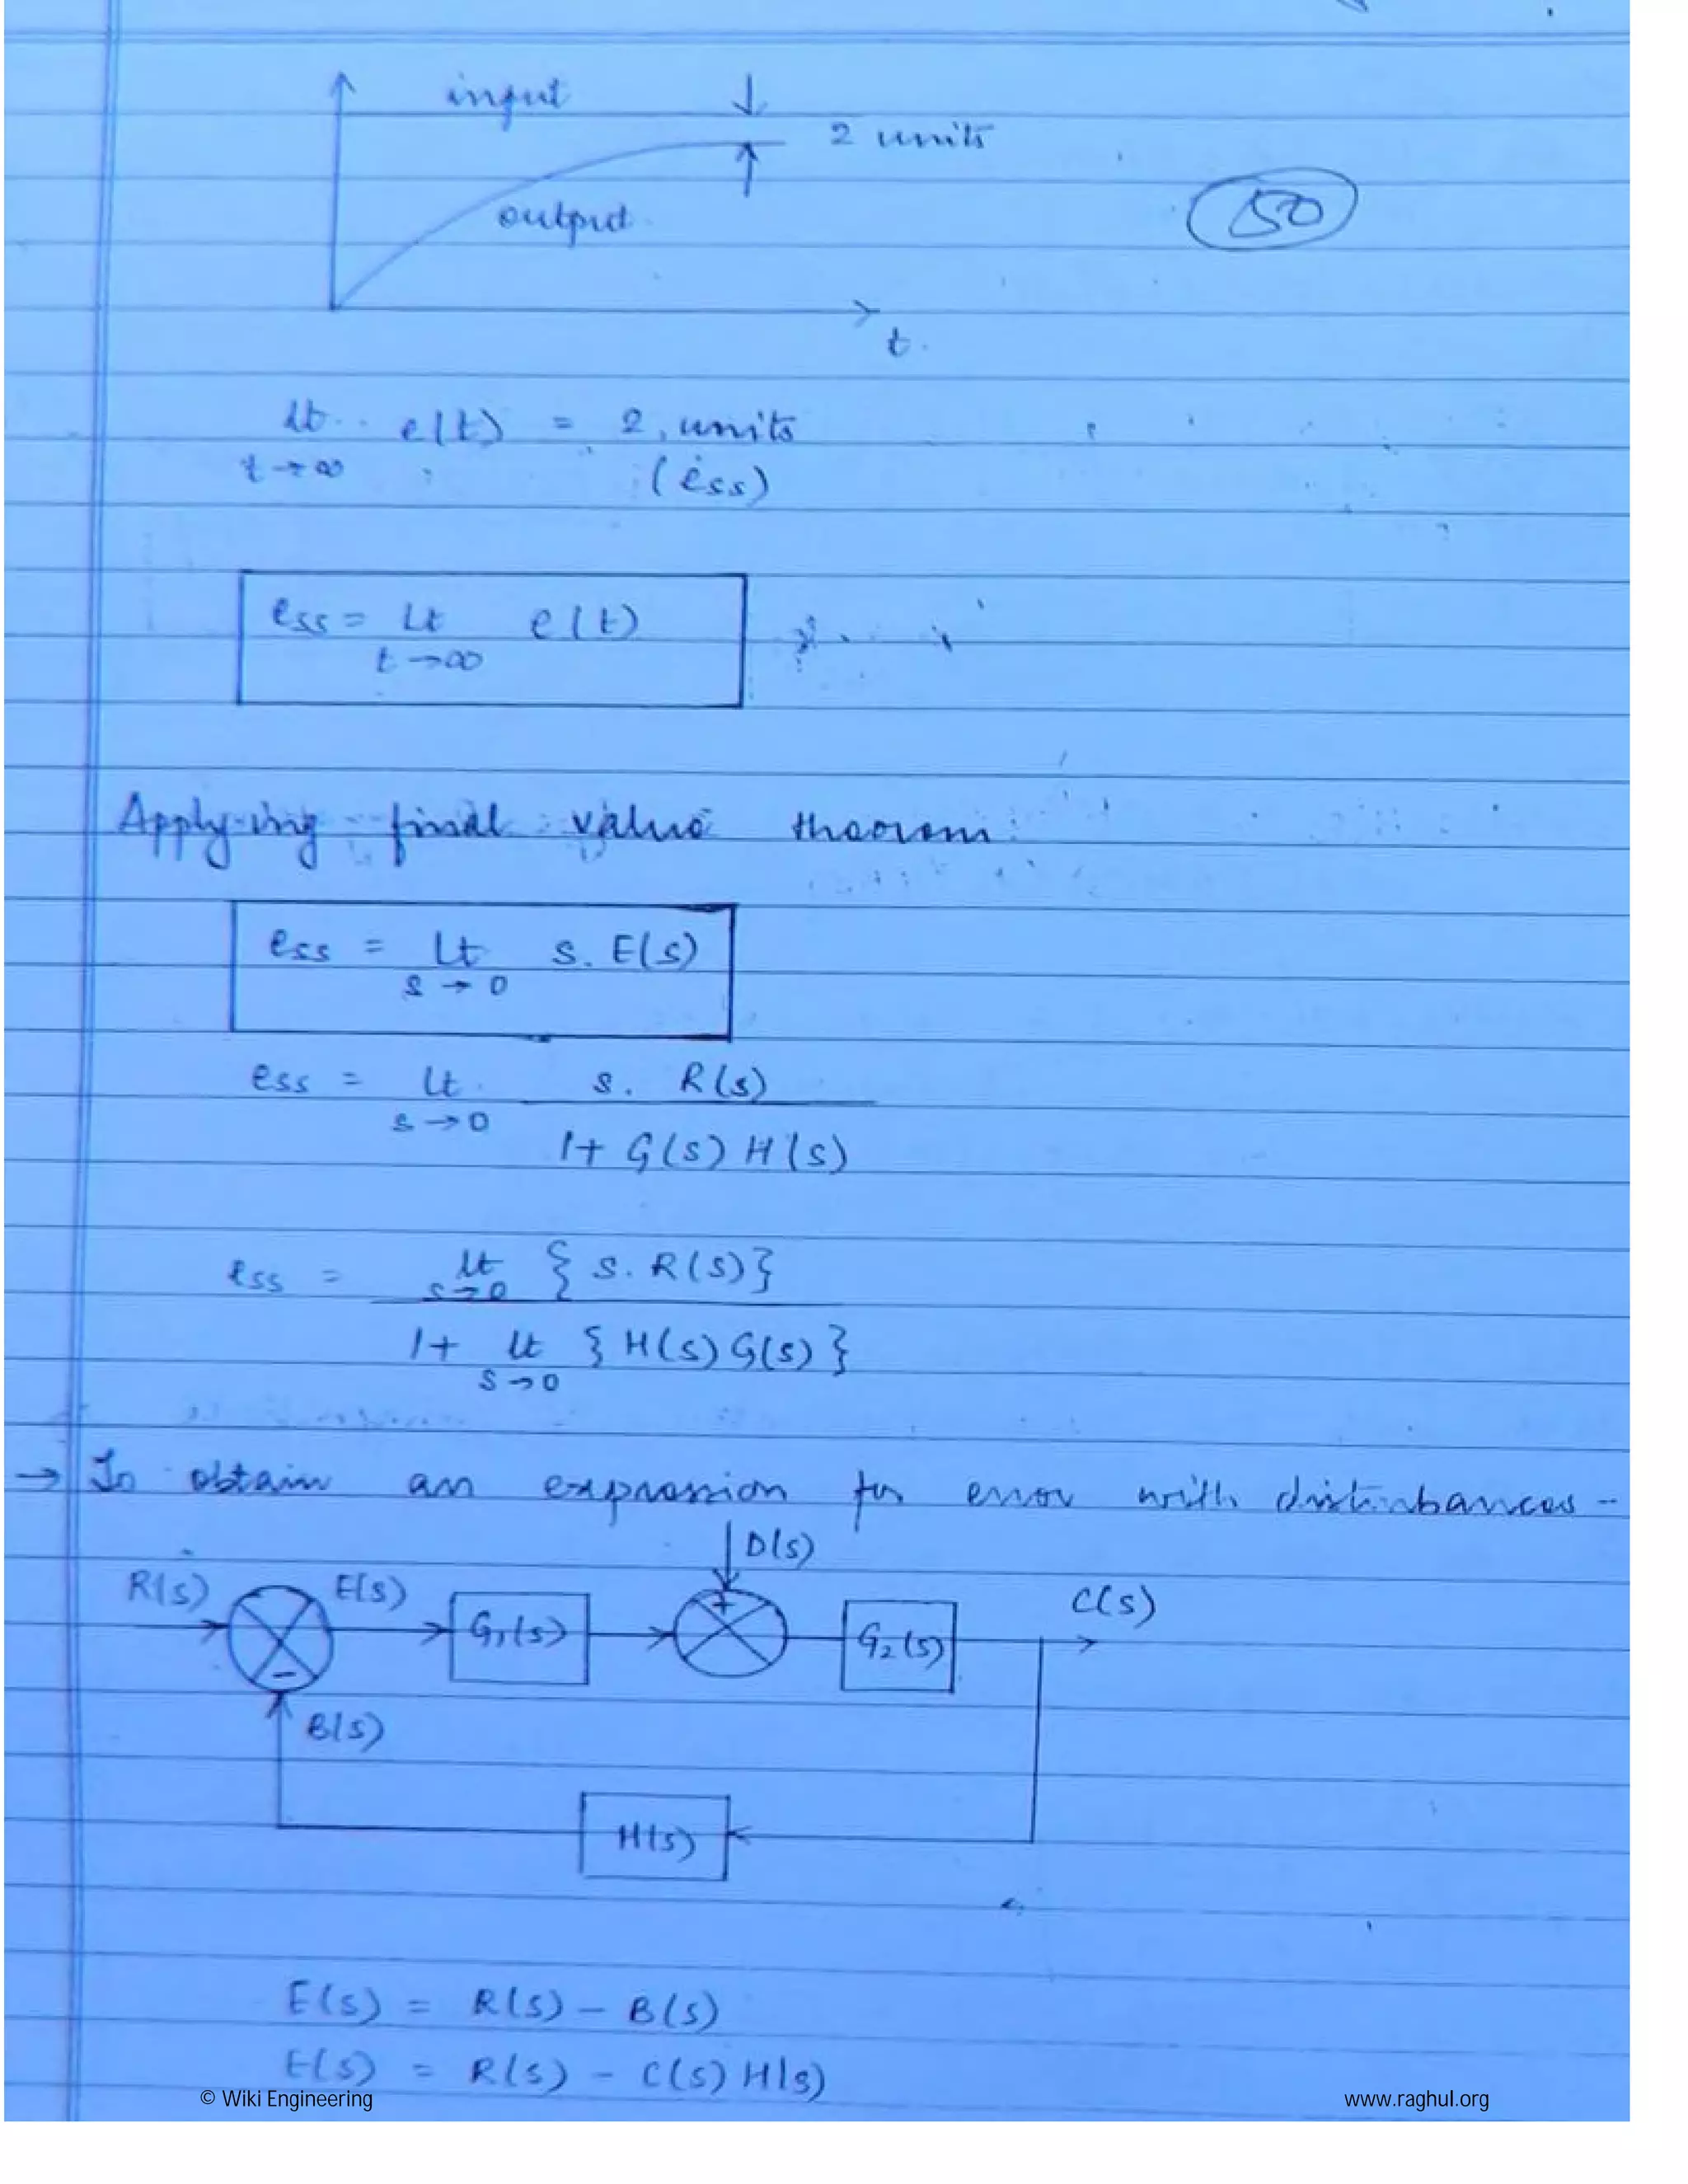 input
2 units
50
output
t.
lt e(t) = 2 units
t→∞ (ess)
ess = Lt e(t)
t→∞
Applying final value theorem
ess = Lt s. E(s)
s→0
ess = Lt s. R(s)
s→0
1+ G(s) H(s)
ess = lt { s. R(s)}
s→0
1+ lt { H(s) G(s) }
s→0
→ To obtain an expression for error with disturbances -
D(s)
R(s) E(s) C(s)
+
G1(s) G2(s)
-
B(s)
H(s)
E(s) = R(s) - B(s)
E(s) = R(s) - C(s) H(s)
© Wiki Engineering www.raghul.org